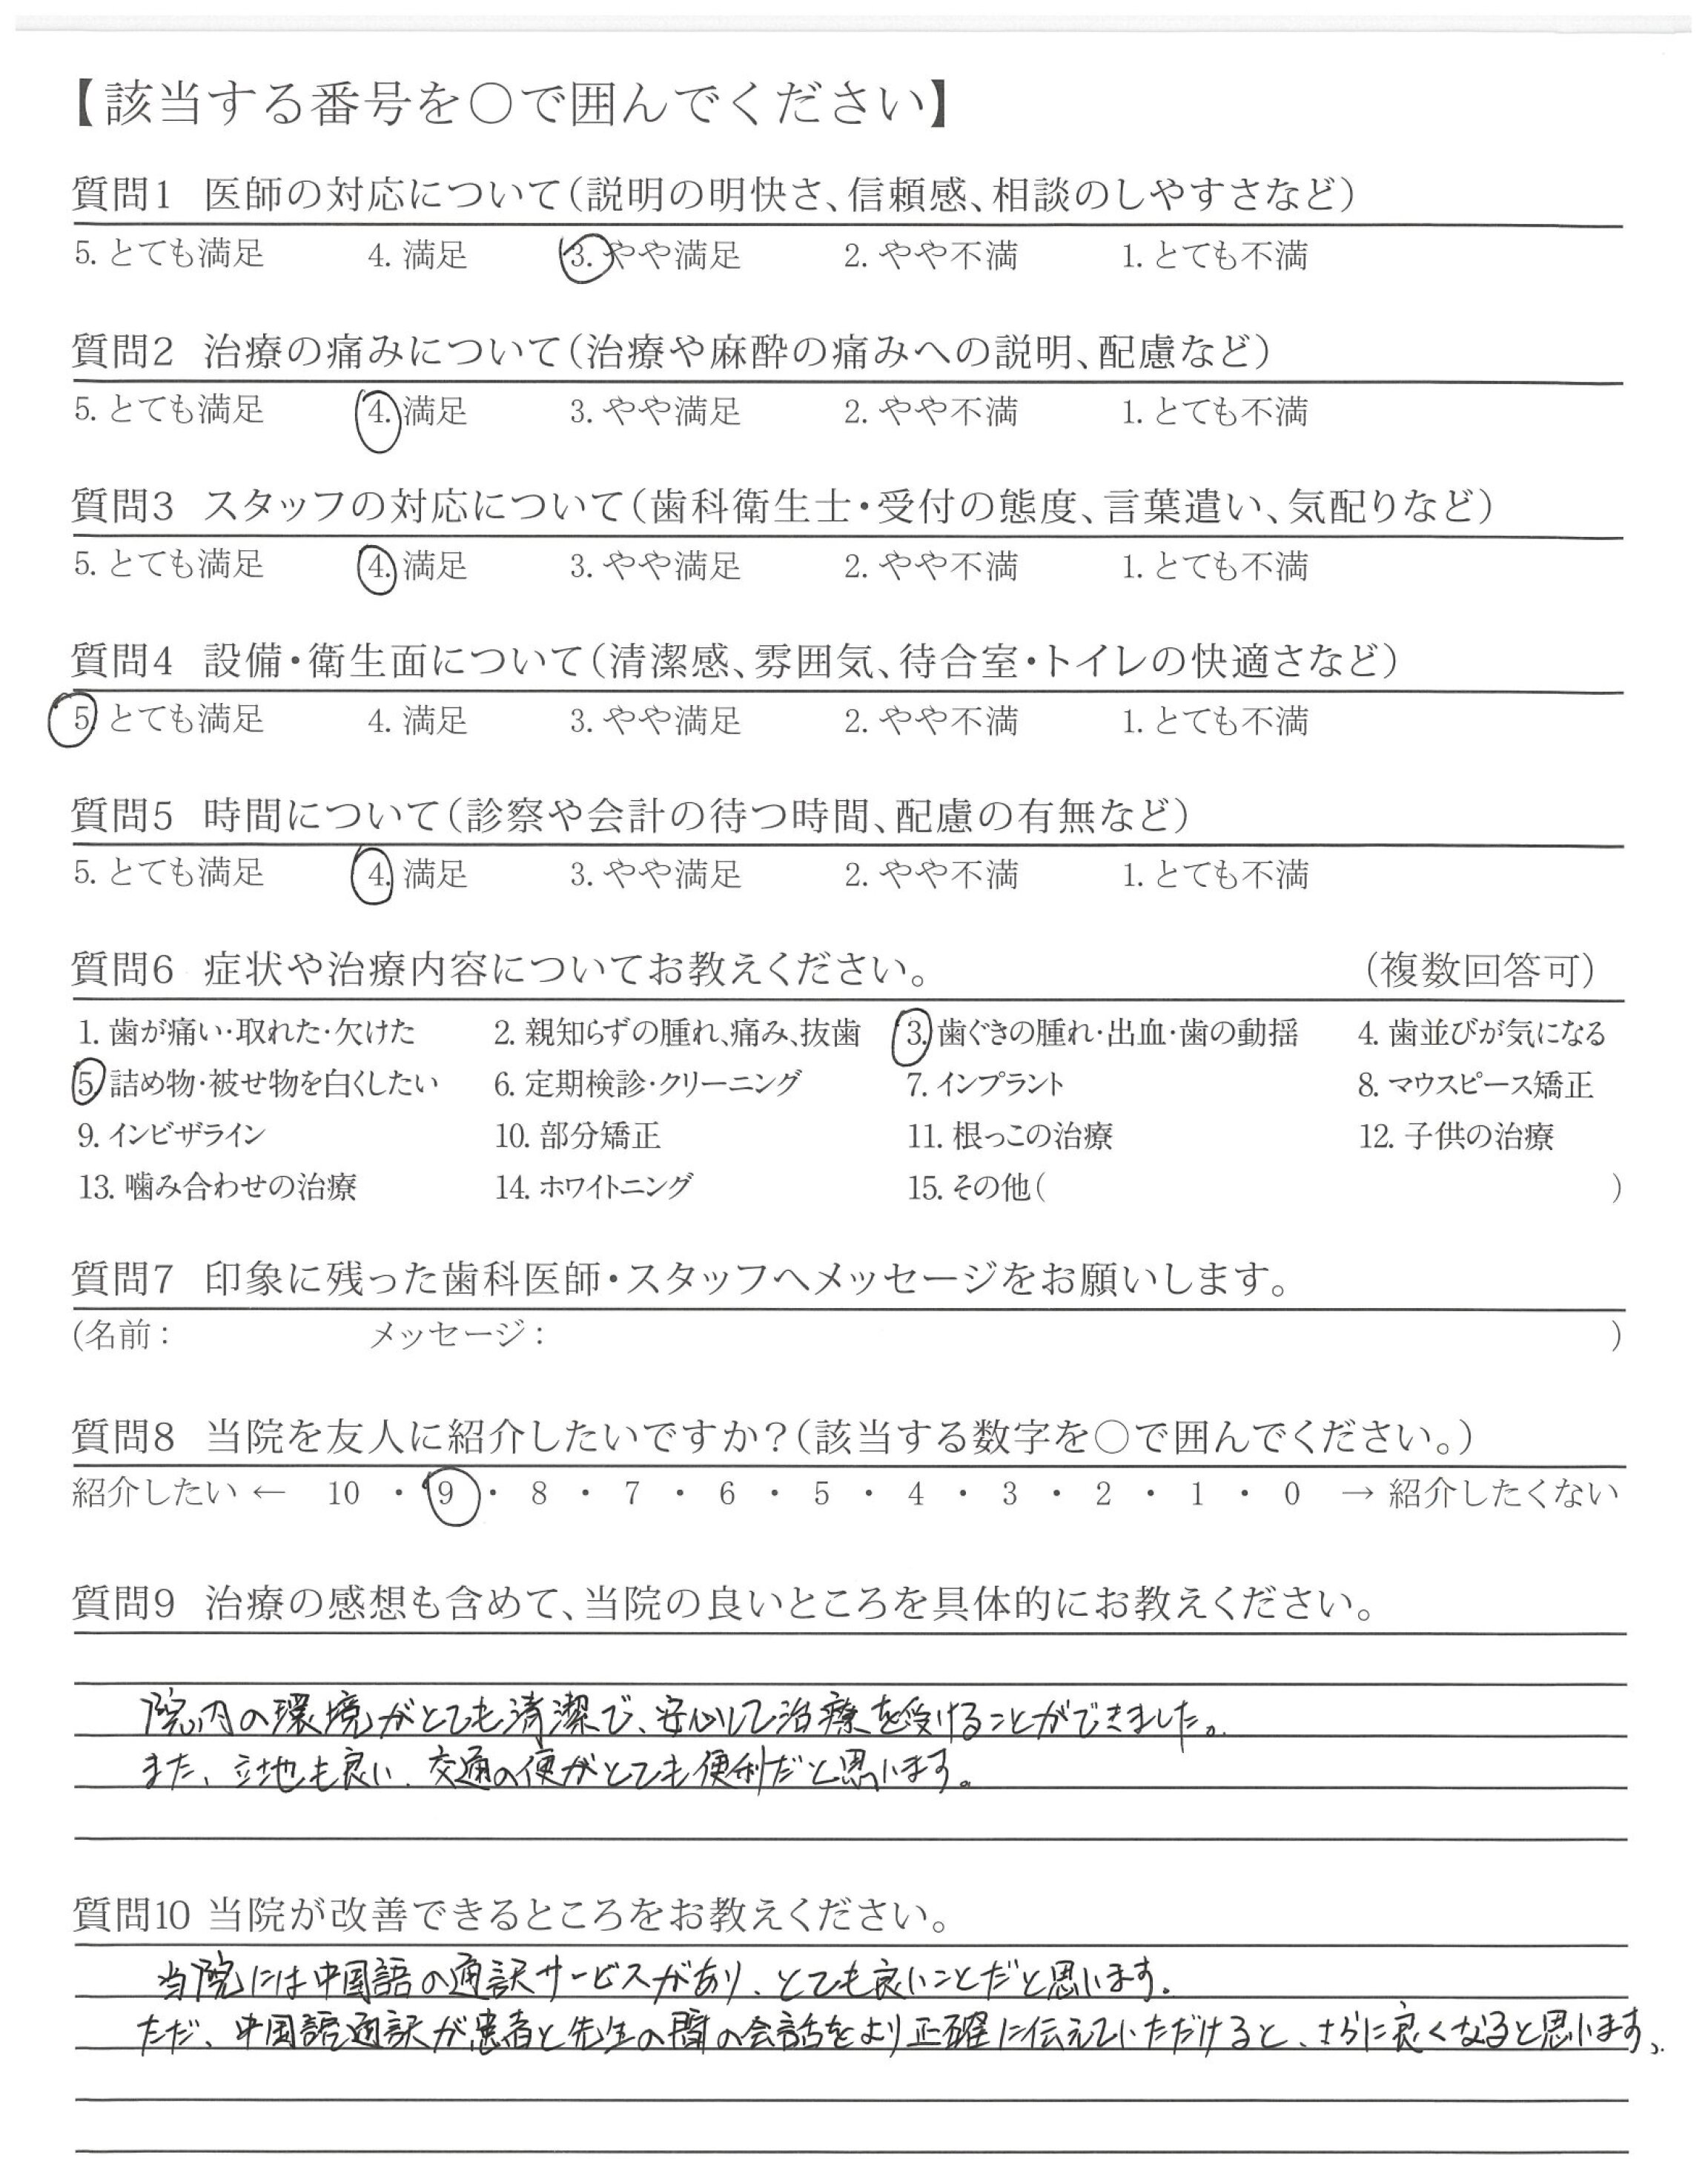 【該当する番号を○で囲んでください】
質問1 医師の対応について(説明の明快さ、信頼感、相談のしやすさなど)
5. とても満足 4. 満足 3. やや満足 2. やや不満 1. とても不満
質問2 治療の痛みについて(治療や麻酔の痛みへの説明、配慮など)
5. とても満足 4. 満足 3. やや満足 2. やや不満 1. とても不満
質問3 スタッフの対応について(歯科衛生士・受付の態度、言葉遣い、気配りなど)
5. とても満足 4. 満足 3. やや満足 2. やや不満 1. とても不満
質問4 設備・衛生面について(清潔感、雰囲気、待合室・トイレの快適さなど)
5. とても満足 4. 満足 3. やや満足 2. やや不満 1. とても不満
質問5 時間について(診察や会計の待つ時間、配慮の有無など)
5. とても満足 4. 満足 3. やや満足 2. やや不満 1. とても不満
質問6 症状や治療内容についてお教えください。 (複数回答可)
1. 歯が痛い・取れた・欠けた 2. 親知らずの腫れ、痛み、抜歯 3. 歯ぐきの腫れ・出血・歯の動揺 4. 歯並びが気になる
5. 詰め物・被せ物を白くしたい 6. 定期検診・クリーニング 7. インプラント 8. マウスピース矯正
9. インビザライン 10. 部分矯正 11. 根っこの治療 12. 子供の治療
13. 噛み合わせの治療 14. ホワイトニング 15. その他( )
質問7 印象に残った歯科医師・スタッフへメッセージをお願いします。
(名前: メッセージ: )
質問8 当院を友人に紹介したいですか?(該当する数字を○で囲んでください。)
紹介したい ← 10 ・ 9 ・ 8 ・ 7 ・ 6 ・ 5 ・ 4 ・ 3 ・ 2 ・ 1 ・ 0 → 紹介したくない
質問9 治療の感想も含めて、当院の良いところを具体的にお教えください。
院内の環境がとても清潔で、安心して治療を受けることができました。
また、立地も良い、交通の便がとても便利だと思います。
質問10 当院が改善できるところをお教えください。
当院には中国語の通訳サービスがあり、とても良いことだと思います。
ただ、中国語通訳が患者と先生の間の会話をより正確に伝えていただけると、さらに良くなると思います。